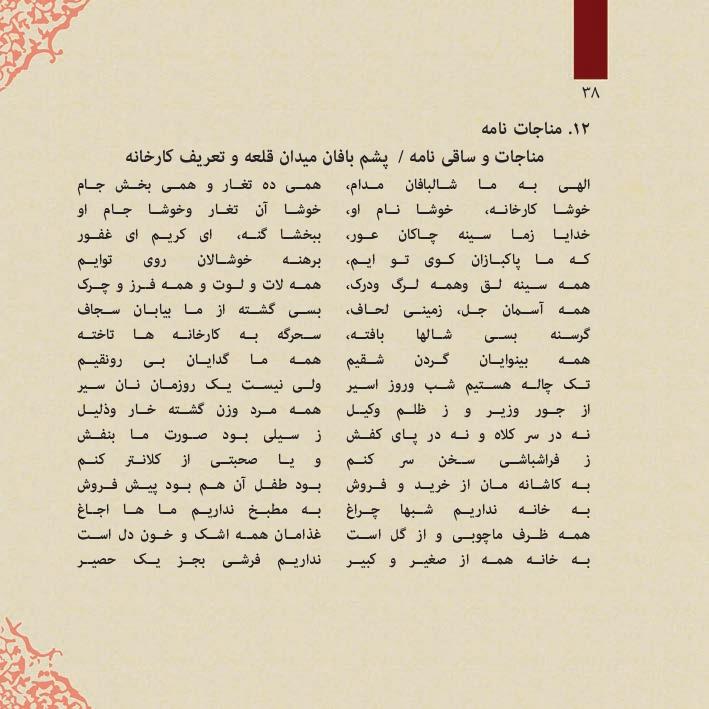 ۳۸
۱۲. مناجات نامه
مناجات و ساقی نامه / پشم بافان میدان قلعه و تعریف کارخانه
الهی به ما شالبافان مدام، همی ده تغار و همی بخش جام
خوشا کارخانه، خوشا نام او، خوشا آن تغار وخوشا جام او
خدایا زما سینه چاکان عور، ببخشا گنه، ای کریم ای غفور
که ما پاکبازان کوی تو ایم، برهنه خوشالان روی توایم
همه سینه لق وهمه لرگ ودرک، همه لات و لوت و همه فرز و چرک
همه آسمان جل، زمینی لحاف، بسی گشته از ما بیابان سجاف
گرسنه بسی شالها بافته، سحرگه به کارخانه ها تاخته
همه بینوایان گردن شقیم همه ما گدایان بی رونقیم
تک چاله هستیم شب وروز اسیر ولی نیست یک روزمان نان سیر
از جور وزیر و ز ظلم وکیل همه مرد وزن گشته خار وذلیل
نه در سر کلاه و نه در پای کفش ز سیلی بود صورت ما بنفش
ز فراشباشی سخن سر کنم و یا صحبتی از کلانتر کنم
به کاشانه مان از خرید و فروش بود طفل آن هم بود پیش فروش
به خانه نداریم شبها چراغ به مطبخ نداریم ما ها اجاغ
همه ظرف ماچوبی و از گل است غذامان همه اشک و خون دل است
به خانه همه از صغیر و کبیر نداریم فرشی بجز یک حصیر